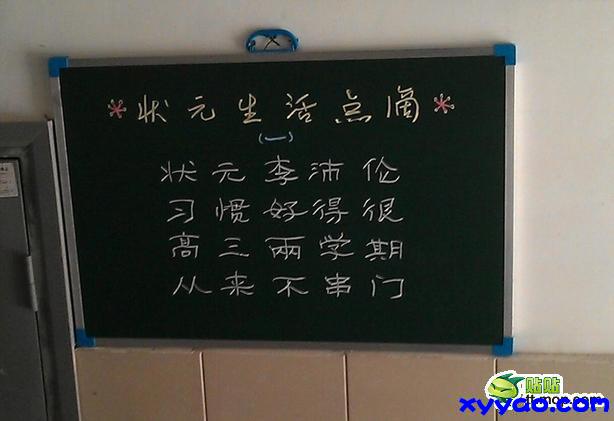 *状元生活点滴*
(一)
状元李沛伦
习惯好得很
高三兩学期
从来不串门
贴贴
tt.mop.com
xyydo.com